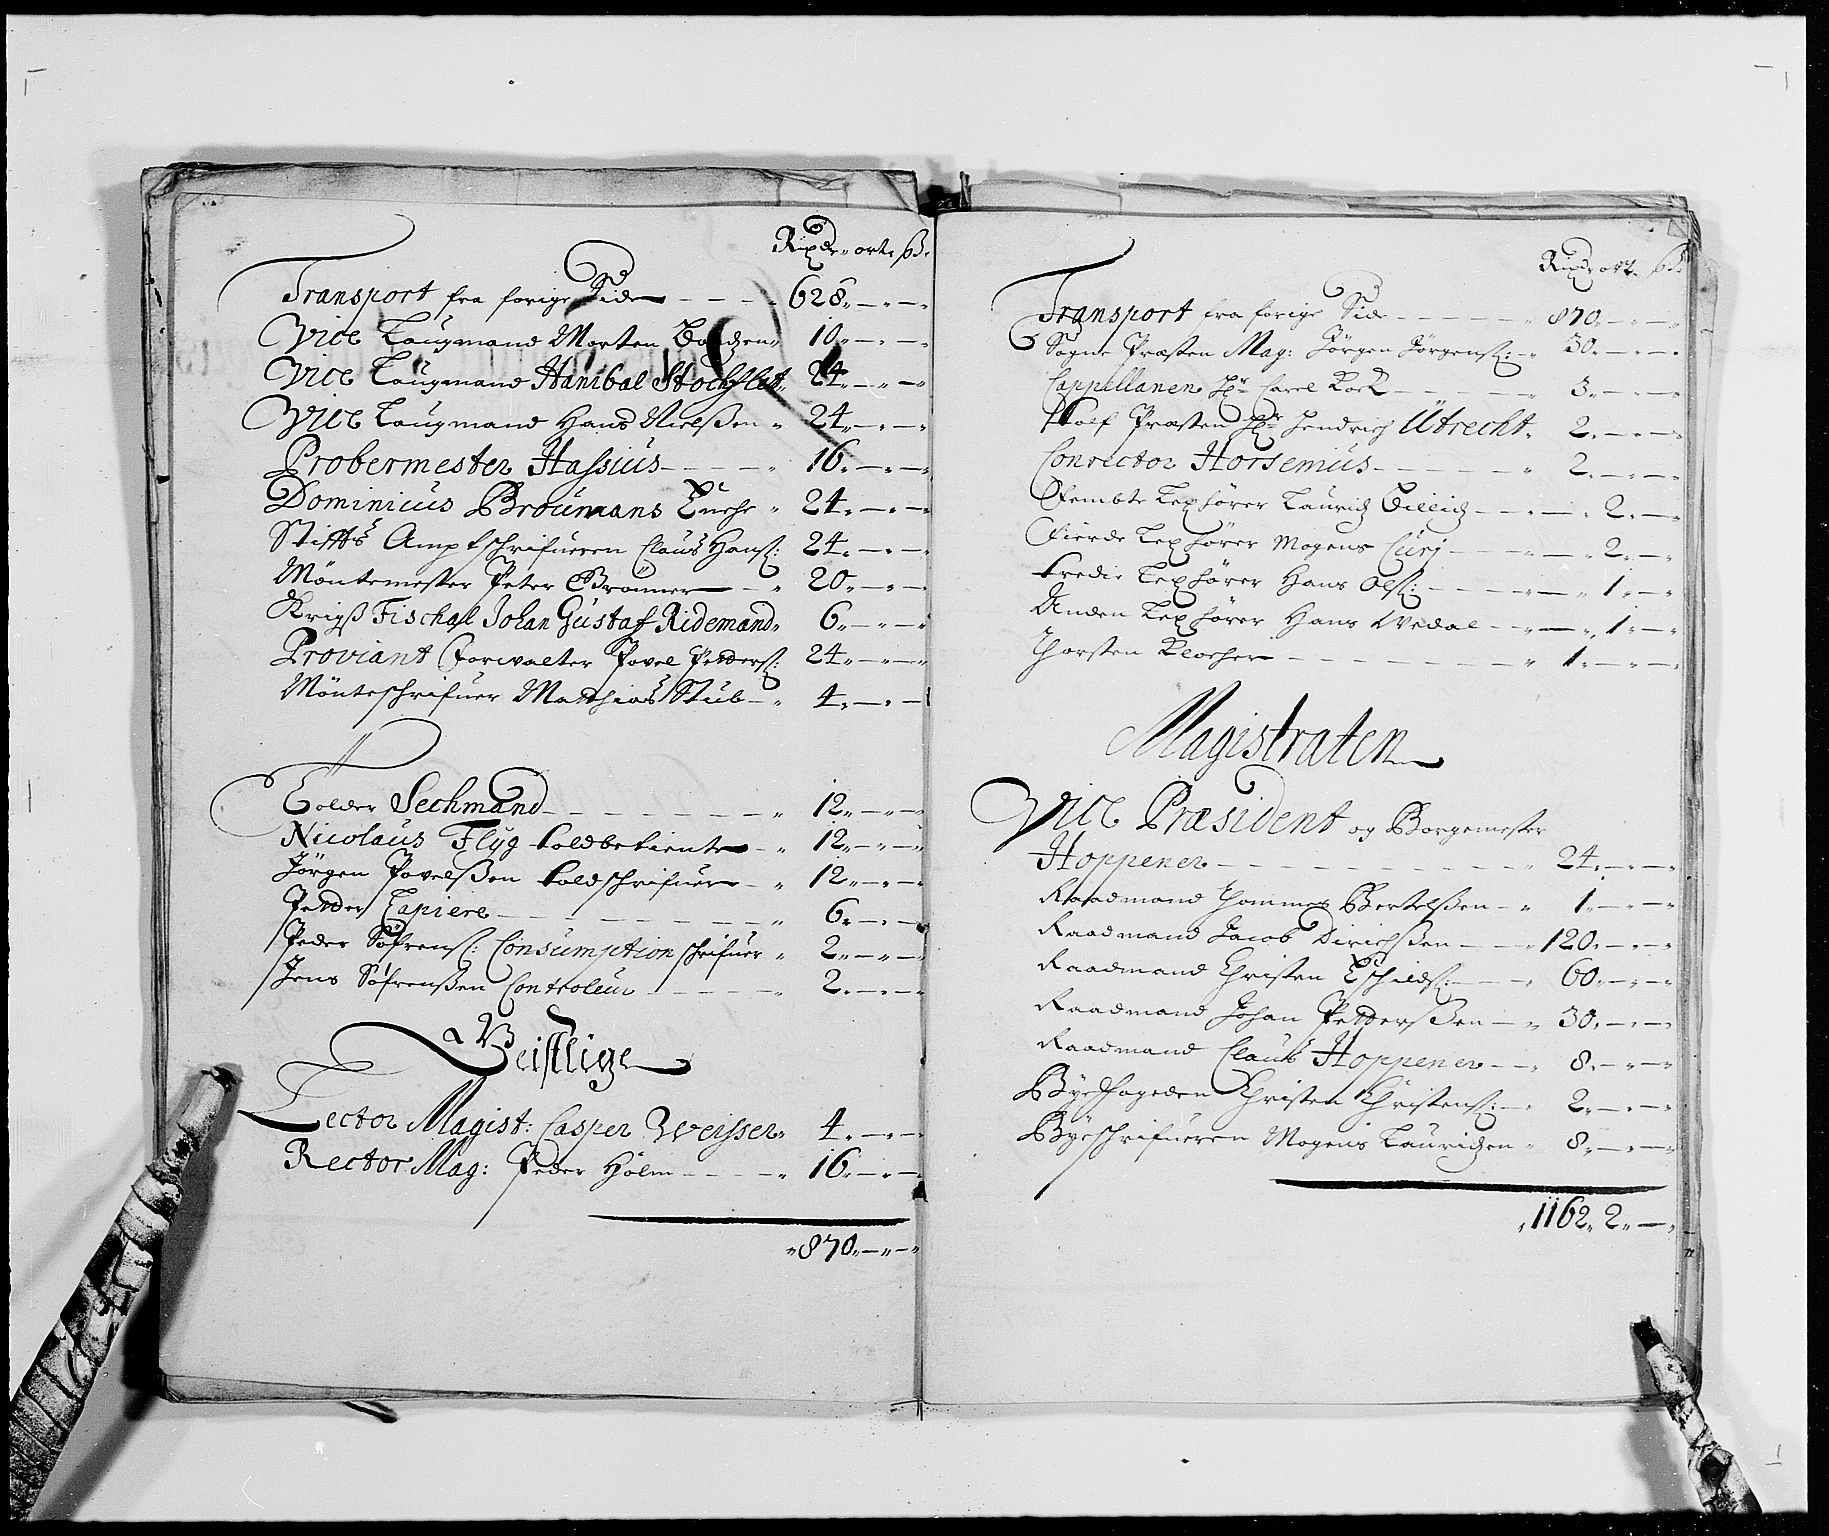 Rixdr- ort- ßr-
Transport fra forige Side - - - - 628.-.-.
Vice Laugmand Morten 10.-.-.
Vice Laugmand Hanibal Stochflet. 24.-.-.
Vice Laugmand Hans Nielßen " 24.-.-.
Probermester Hassius - - - - " 16.-.-.
Dominicus Broumans Enche " 24.-.-.
Stiffts Amptschrifueren Claus Hanß: 24.-.-.
Möntemester Peter Brönner - " 20.-.-.
Krigß Fischall Johan Gustaf Ridemand. 6.-.-.
Proviant Forvalter Povel Pederß: 24.-.-.
Mönteschrifuer Matthias Stub - " 4.-.-.
Tolder Sechmand - - - - - - - " 12.-.-.
Nicolaus Flyg toldbetiente - " 12.-.-.
Jörgen Povelßen toldschrifuer - " 12.-.-.
Petter Tapiere - - - - - - - " 6.-.-.
Peder Söfrenß: Consumption schrifuer " 2.-.-.
Jens Söfrenßen Controleur - - - - " 2.-.-.
Geistlige
Lector Magist: Casper Weisser. 4.-.-.
Rector Mag: Peder Holm - - - - " 16.-.-.
" 870.-.-.
Rixdr ort- ßr-
Transport fra forige Side - - - - - " 870.-.-.
Sogne Præsten Mag: Jörgen Jörgenß: - " 30.-.-.
Cappellanen Hr Carel - - - - - " 3.-.-.
Præsten Hr Hendrich Utrecht. 2.-.-.
Conrector Horsemius - - - - - " 2.-.-.
Fembte Lexhörer Lauridz Billidz - - - . 2.-.
Fierde Lexhörer Mogens Curj - - - - . 2.-.
tredie Lexhörer Hans Olß: - - - - - " 1.-.
Anden Lexhörer Hans Wedal - - - - . 1.-.
Thorsten Klocher - - - - - - - " 1.-.-.
Magistraten
Vice Præsident og Borgemester
Hoppener - - - - - - - - - " 24.-.-.
Raadmand Thommes Bertelßen - " 1.-.-.
Raadmand Jacob Dirichßen - - " 120.-.-.
Raadmand Christen Eschildß: - - " 60.-.-.
Raadmand Johan Pederßen - " 30.-.-.
Raadmand Claus Hoppener - - " 8.-.-.
Byefogeden Christen Christenß: - " 2.-.-.
Byeschrifueren Mogens Lauridzen " 8.-.-.
" 1162. 2.-.